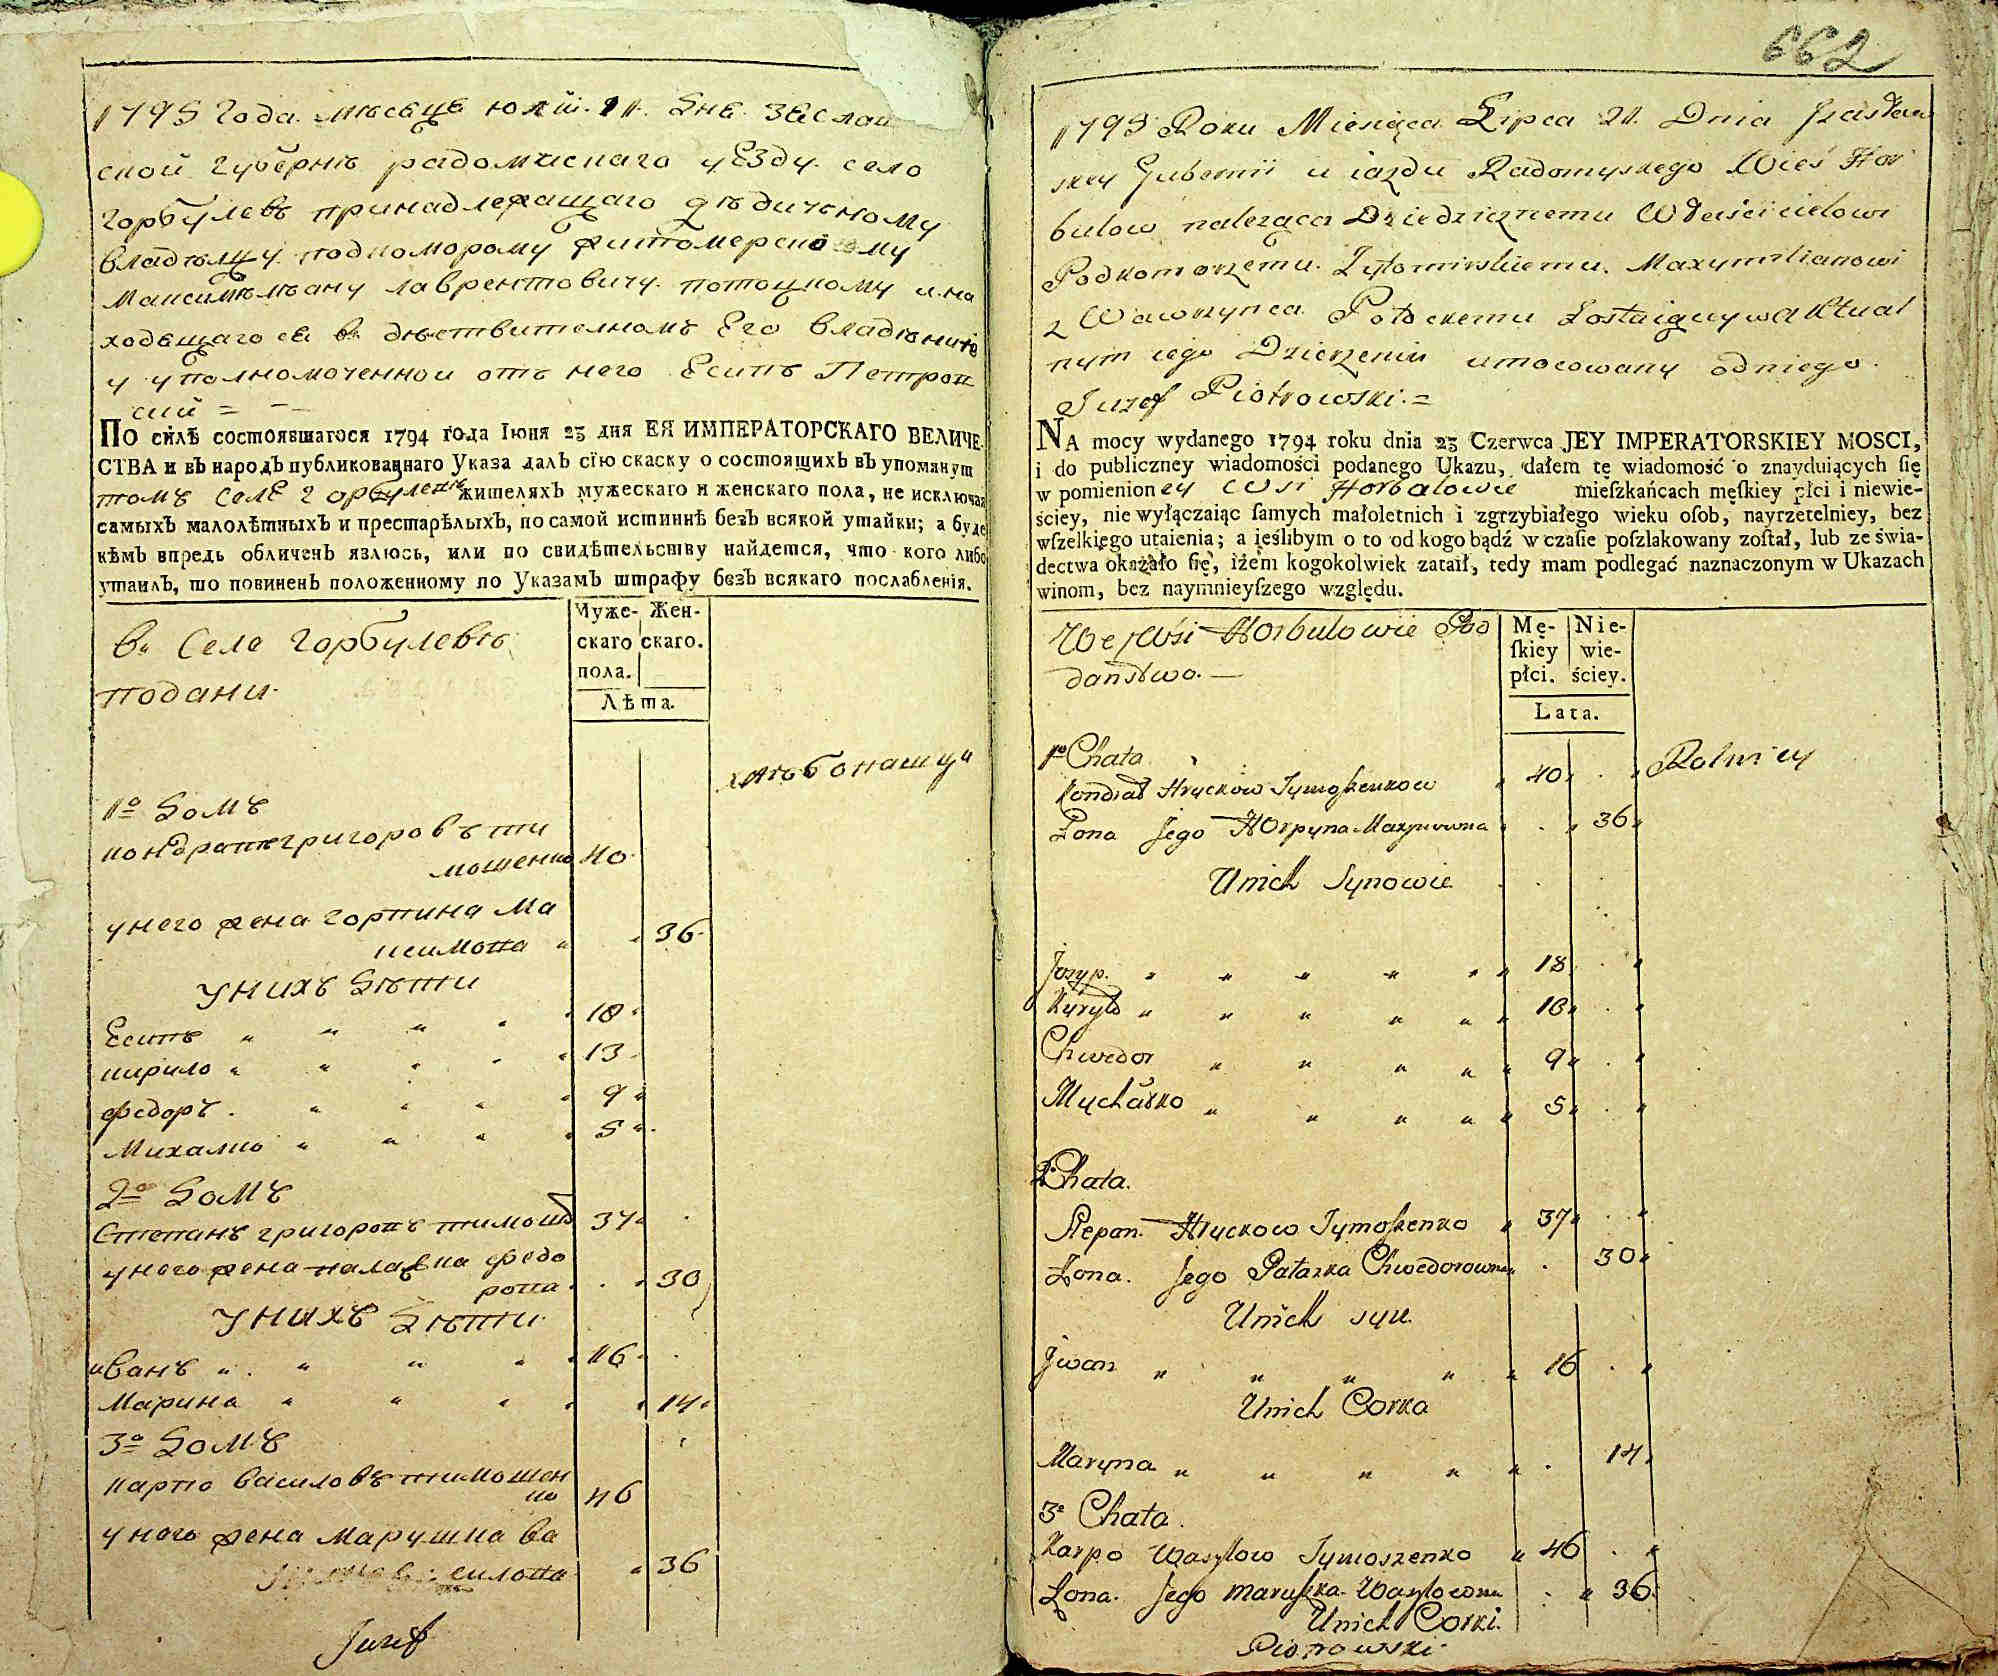 1795 года мѣсѣца юлїй 11 дне Заслав
ской губернѣ радомискаго уезду село
горбулевъ принадлежащаго дѣдичьному
владѣлцу подкоморому житомерскому
Максимѣлѣану лаврентовичу потоцкому и на
ходещаго ся въ дѣствителномъ Его владѣнїе
у уполномоченной отъ него Есипъ Петров
ский = - -
По силѣ состоявшагося 1794 года Іюня 23 дня ЕЯ ИМПЕРАТОРСКАГО ВЕЛИЧЕ-
СТВА и въ народъ публикованнаго Указа далъ сїю скаску о состоящихъ въ упомянут
томъ селе горбулевѣ жителяхъ мужескаго и женскаго пола, не исключая
самыхъ малолѣтныхъ и престарѣлыхъ, по самой истиннѣ безъ всякой утайки; а буде
кѣмъ впредь обличенъ явлюсь, или по свидѣтельству найдется, что кого либо
утаилъ, то повиненъ положенному по Указамъ штрафу безъ всякаго послабленїя.
въ Селе горбулевѣ
подани
Муже- Жен-
скаго скаго.
пола.
Лѣта.
хлѣбопашци
1º домъ
кондратъ григоровъ ти
мошенко 40
у него жена горпина Ма
ксимова 36
У нихъ дѣти
Есипъ 18
кирило 13
федоръ 9
Михалко 5
2º домъ
Степанъ григоровъ тимош 37
у него жена палажка федо
рова 30
У нихъ дѣти
иванъ 16
Марина 14
3º домъ
карпо василовъ тимошен
ко 46
у него жена марушка ва
силова 36
Jurzef
662
1795 Roku Miesiąca Lipca 21 Dnia Jzasław
skey Gubernii u iazdu Radomyskego Wieś Hor
bulow należąca Dziedzicznemu Właścicielowi
Podkomorzemu Żytomirskiemu Maxymilianowi
z Wawrzynca Potockemu Zostaiący w aktual
nym iego Dzierżeniu umocowany od niego
Juzef Piotrowski =
NA mocy wydanego 1794 roku dnia 23 Czerwca JEY IMPERATORSKIEY MOSCI,
i do publiczney wiadomości podanego Ukazu, dałem tę wiadomość o znayduiących się
w pomienioney wsi Horbulowie mieszkańcach męskiey płci i niewie-
ściey, nie wyłączaiąc samych małoletnich i zgrzybiałego wieku osob, nayrzetelniey, bez
wszelkiego utaienia; a ieślibym o to od kogo bądź w czasie poszlakowany został, lub ze świa-
dectwa okazało się, iżem kogokolwiek zataił, tedy mam podlegać naznaczonym w Ukazach
winom, bez naymnieyszego względu.
We Wsi Horbulowie Pod
daństwo. —
Mę- Nie-
skiey wie-
płci. ściey.
Lata.
1º Chata
Kondrat Hryckow Tymoszenkow 40 Rolnicy
Żona Jego Horpyna Maxymowna 36
Unich Synowie
Jozyp. 18
Kyryło 13
Chwedor 9
Mychałko 5
2 Chata.
Stepan Hryckow Tymoszenko 37
Żona Jego Patazka Chwedorowna 30
Unich syn
Jwan 16
Unich Corka
Maryna 14
3º Chata
Karpo Wasylow Tymoszenko 46
Żona Jego Maruszka Wasylowna 36
Unich Corki.
Piotrowski